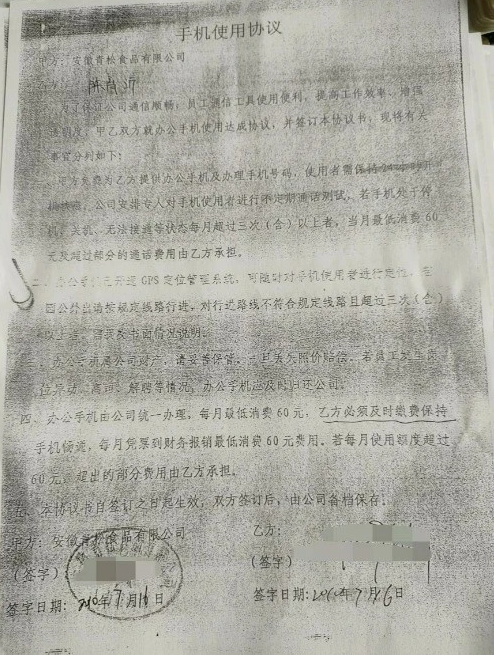 手机使用协议
甲方：安徽青松食品有限公司
乙方：
为了保证公司通信顺畅，员工通信工具使用便利，提高工作效率，增强
甲乙双方就办公手机使用达成协议，并签订本协议书，现将有关
事宜分列如下：
甲方免费为乙方提供办公手机及办理手机号码，使用者需保持24小时开
公司安排专人对手机使用者进行不定期通话测试，若手机处于停
机、关机、无法接通等状态每月超过三次（含）以上者，当月最低消费60
元及超过部分的通话费用由乙方承担。
二、办公手机已开通GPS定位管理系统，可随时对手机使用者进行定位，在
因公外出请按规定线路行进，对行走路线不符合规定线路且超过三次（含）
以上者，书面情况说明。
三、办公手机属公司财产，请妥善保管，一旦丢失照价赔偿。若员工发生岗
位异动、离司、解聘等情况，办公手机应及时归还公司。
四、办公手机由公司统一办理，每月最低消费60元，乙方必须及时缴费保持
手机畅通，每月凭票到财务报销最低消费60元费用。若每月使用额度超过
60元，超出的部分费用由乙方承担。
五、本协议书自签订之日起生效，双方签订后，由公司备档保存。
甲方：安徽青松食品有限公司 乙方：
（签字） （签字）
签字日期：2010年7月16日 签字日期：2010年7月16日